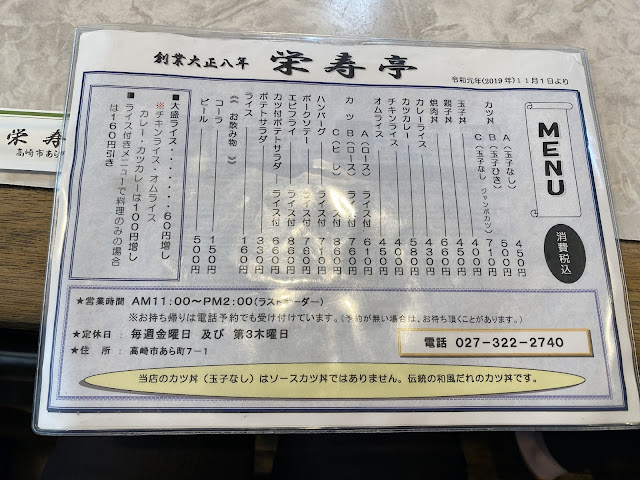 創業大正八年 栄寿亭
令和元年(2019年)11月1日より
MENU
消費税込
カツ丼 A(玉子なし) 450円
B(玉子ひき) 500円
C(玉子なし ジャンボカツ) 710円
玉子丼 400円
親子丼
焼肉丼 660円
カレーライス 430円
カツカレー 580円
チキンライス 400円
オムライス 450円
カツ A(ロース)ライス付 610円
B(ロース)ライス付 760円
C(ヒレ)ライス付 860円
ハンバーグ ライス付 710円
ポークソテー ライス付 760円
エビフライ ライス付 860円
カツ付ポテトサラダ ライス付 660円
ポテトサラダ 330円
ライス 160円
《お飲み物》
コーラ 150円
ビール 500円
■大盛ライス・・・・・・・60円増し
※チキンライス・オムライス
カレー・カツカレーは100円増し
■ライス付きメニューで料理のみの場合
は160円引き
★営業時間 AM11:00〜PM2:00(ラストオーダー)
※お持ち帰りは電話予約でも受け付けています。(予約が無い場合は、お待ち頂くことがあります。)
★定休日 : 毎週金曜日 及び 第3木曜日
★住 所 : 高崎市あら町7-1
電話 027-322-2740
当店のカツ丼(玉子なし)はソースカツ丼ではありません。伝統の和風だれのカツ丼です。
栄寿
高崎市あら